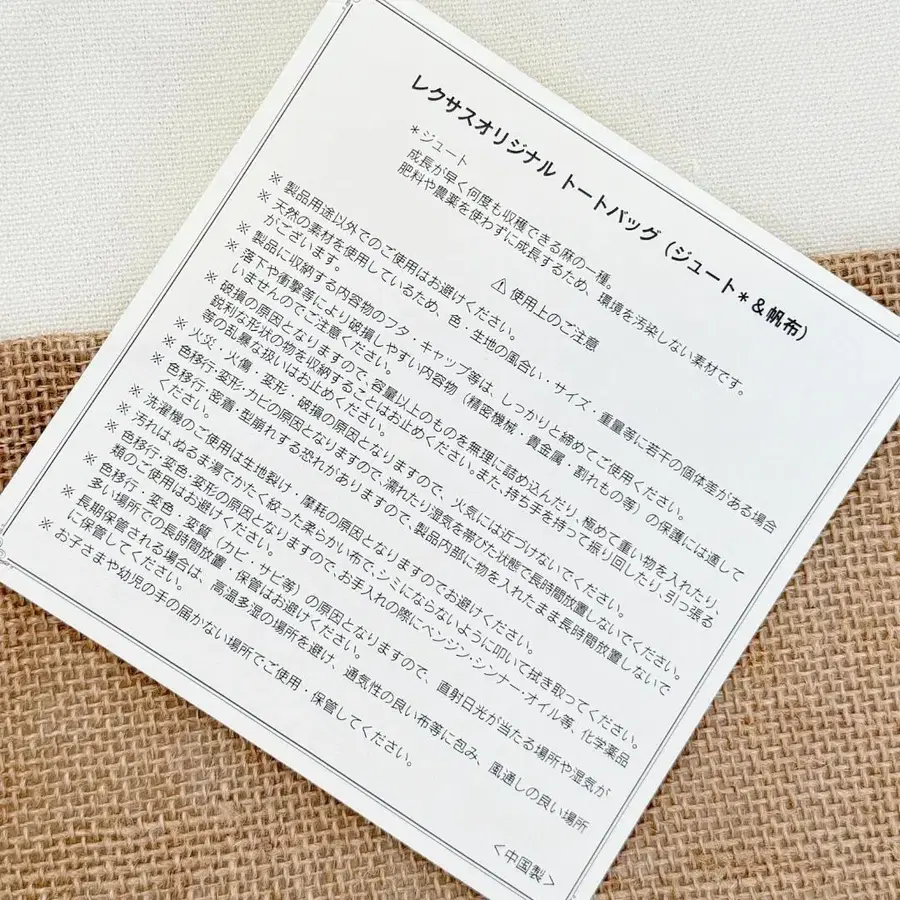 レクサスオリジナル トートバッグ（ジュート＊&帆布）
＊ジュート
成長が早く何度も収穫できる麻の一種。
肥料や農薬を使わずに成長するため、環境を汚染しない素材です。
⚠使用上のご注意
※ 製品用途以外でのご使用はお避けください。
※ 天然の素材を使用しているため、色・生地の風合い・サイズ・重量等に若干の個体差がある場合
がございます。
※ 製品に収納する内容物のフタ・キャップ等は、しっかりと締めてご使用ください。
※ 落下や衝撃等により破損しやすい内容物（精密機械・貴金属・割れもの等）の保護には適して
いませんのでご注意ください。
※ 破損の原因となりますので、容量以上のものを無理に詰め込んだり、極めて重い物を入れたり、
鋭利な形状の物を収納することはお止めください。また、持ち手を持って振り回したり、引っ張る
等の乱暴な扱いはお止めください。
※ 火災・火傷・変形・破損の原因となりますので、火気には近づけないでください。
※ 色移行・変形・カビの原因となりますので、濡れたり湿気を帯びた状態で長時間放置しないでください。
※ 色移行・密着・型崩れする恐れがありますので、製品内部に物を入れたまま長時間放置しないで
ください。
※ 洗濯機のご使用は生地裂け・摩耗の原因となりますのでお避けください。
※ 汚れは、ぬるま湯でかたく絞った柔らかい布で、シミにならないように叩いて拭き取ってください。
※ 色移行・変色・変形の原因となりますので、お手入れの際にベンジン・シンナー・オイル等、化学薬品
類のご使用はお避けください。
※ 色移行・変色・変質（カビ・サビ等）の原因となりますので、直射日光が当たる場所や湿気が
多い場所での長時間放置・保管はお避けください。
※ 長期保管される場合は、高温多湿の場所を避け、通気性の良い布等に包み、風通しの良い場所
に保管してください。
※ お子さまや幼児の手の届かない場所でご使用・保管してください。
＜中国製＞